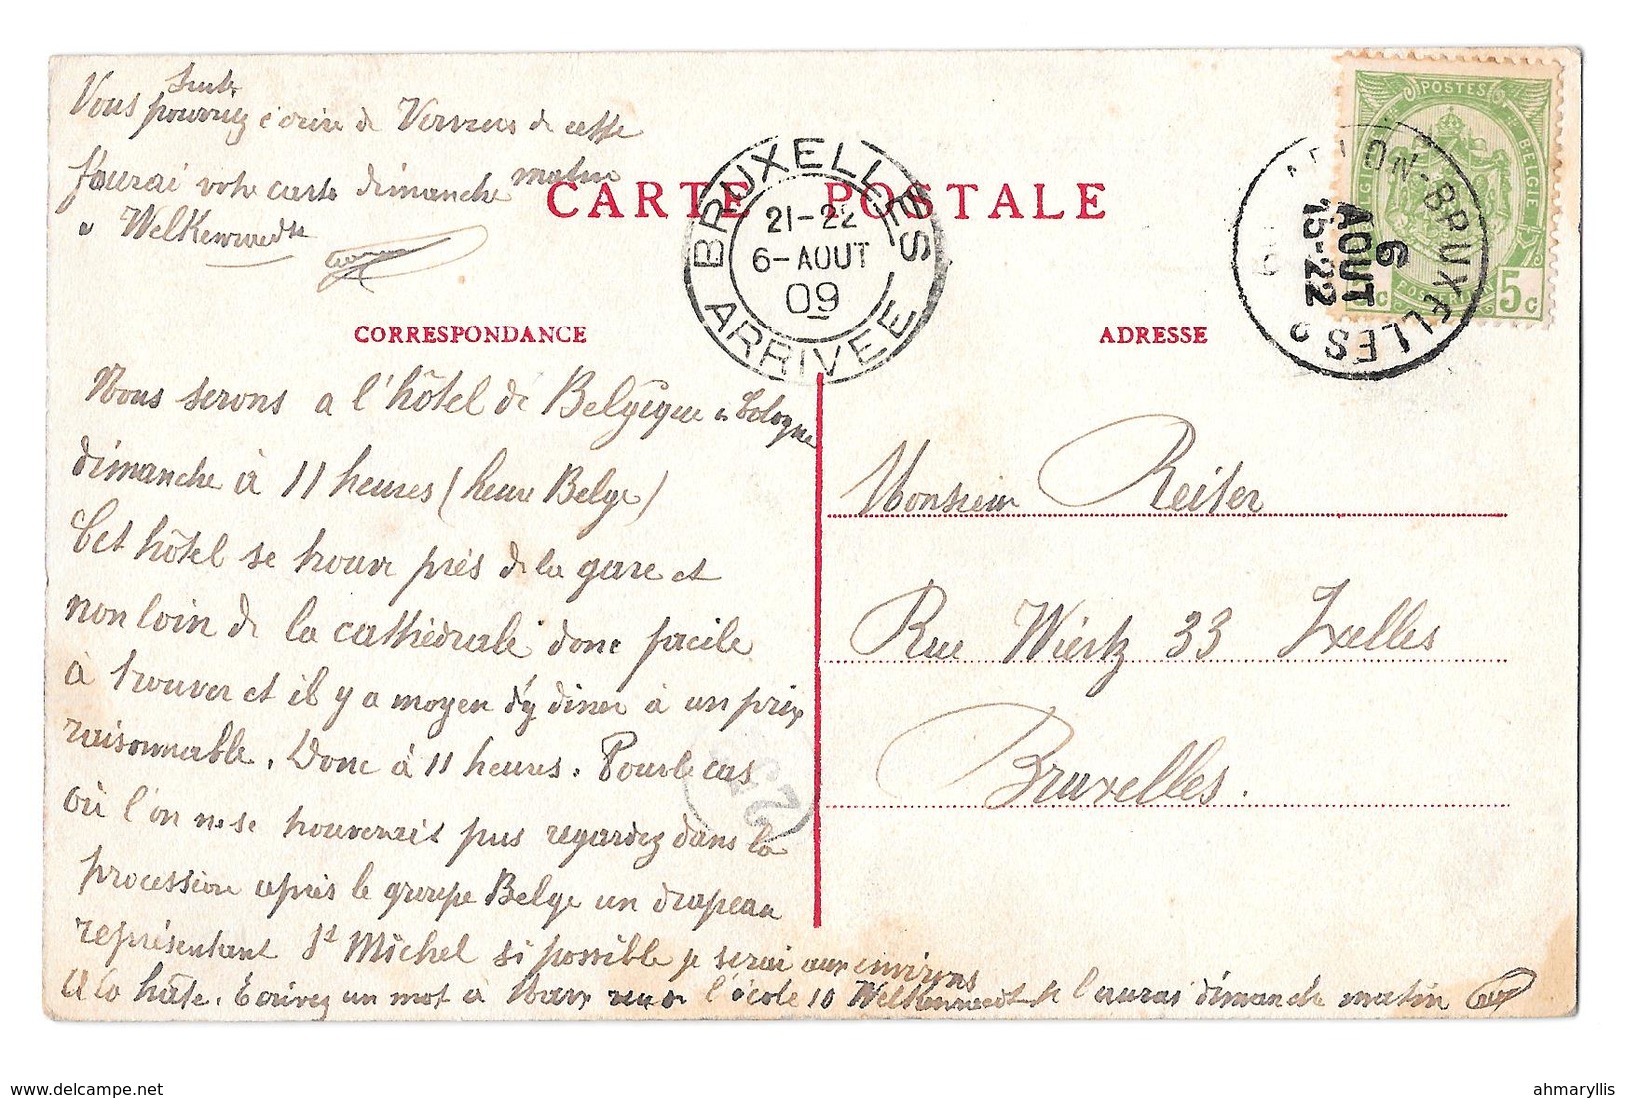 Suite
Vous pourriez écrire de Verviers de cette
J'aurai votre carte dimanche matin
à Welkenraedt
CARTE POSTALE
BRUXELLES
21-22
6-AOUT
09
ARRIVEE
POSTES
BELGIE BELGIQUE
5c
ARLON-BRUXELLES 2
6
AOUT
15-22
CORRESPONDANCE
ADRESSE
Nous serons a l'hôtel de Belgique à Cologne
dimanche à 11 heures (heure Belge)
Cet hôtel se trouve près de la gare et
non loin de la cathédrale donc facile
à trouver et il y a moyen d'y diner à un prix
raisonnable. Donc à 11 heures. Pour le cas
où l'on ne se trouverais pas regardez dans la
procession après le groupe Belge un drapeau
représentant St Michel si possible je serai aux environs
A la hâte. Ecrivez un mot à l'école 10 Welkenraedt je l'aurai dimanche matin
Monsieur Reiter
Rue Wiertz 33 Ixelles
Bruxelles.
www.delcampe.net
ahmaryllis